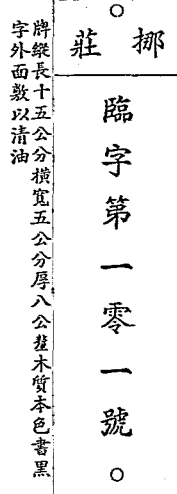 挪莊
臨字第一零一號
牌縱長十五公分橫寬五公分厚八公釐木質本色書黑
字外面敷以清油